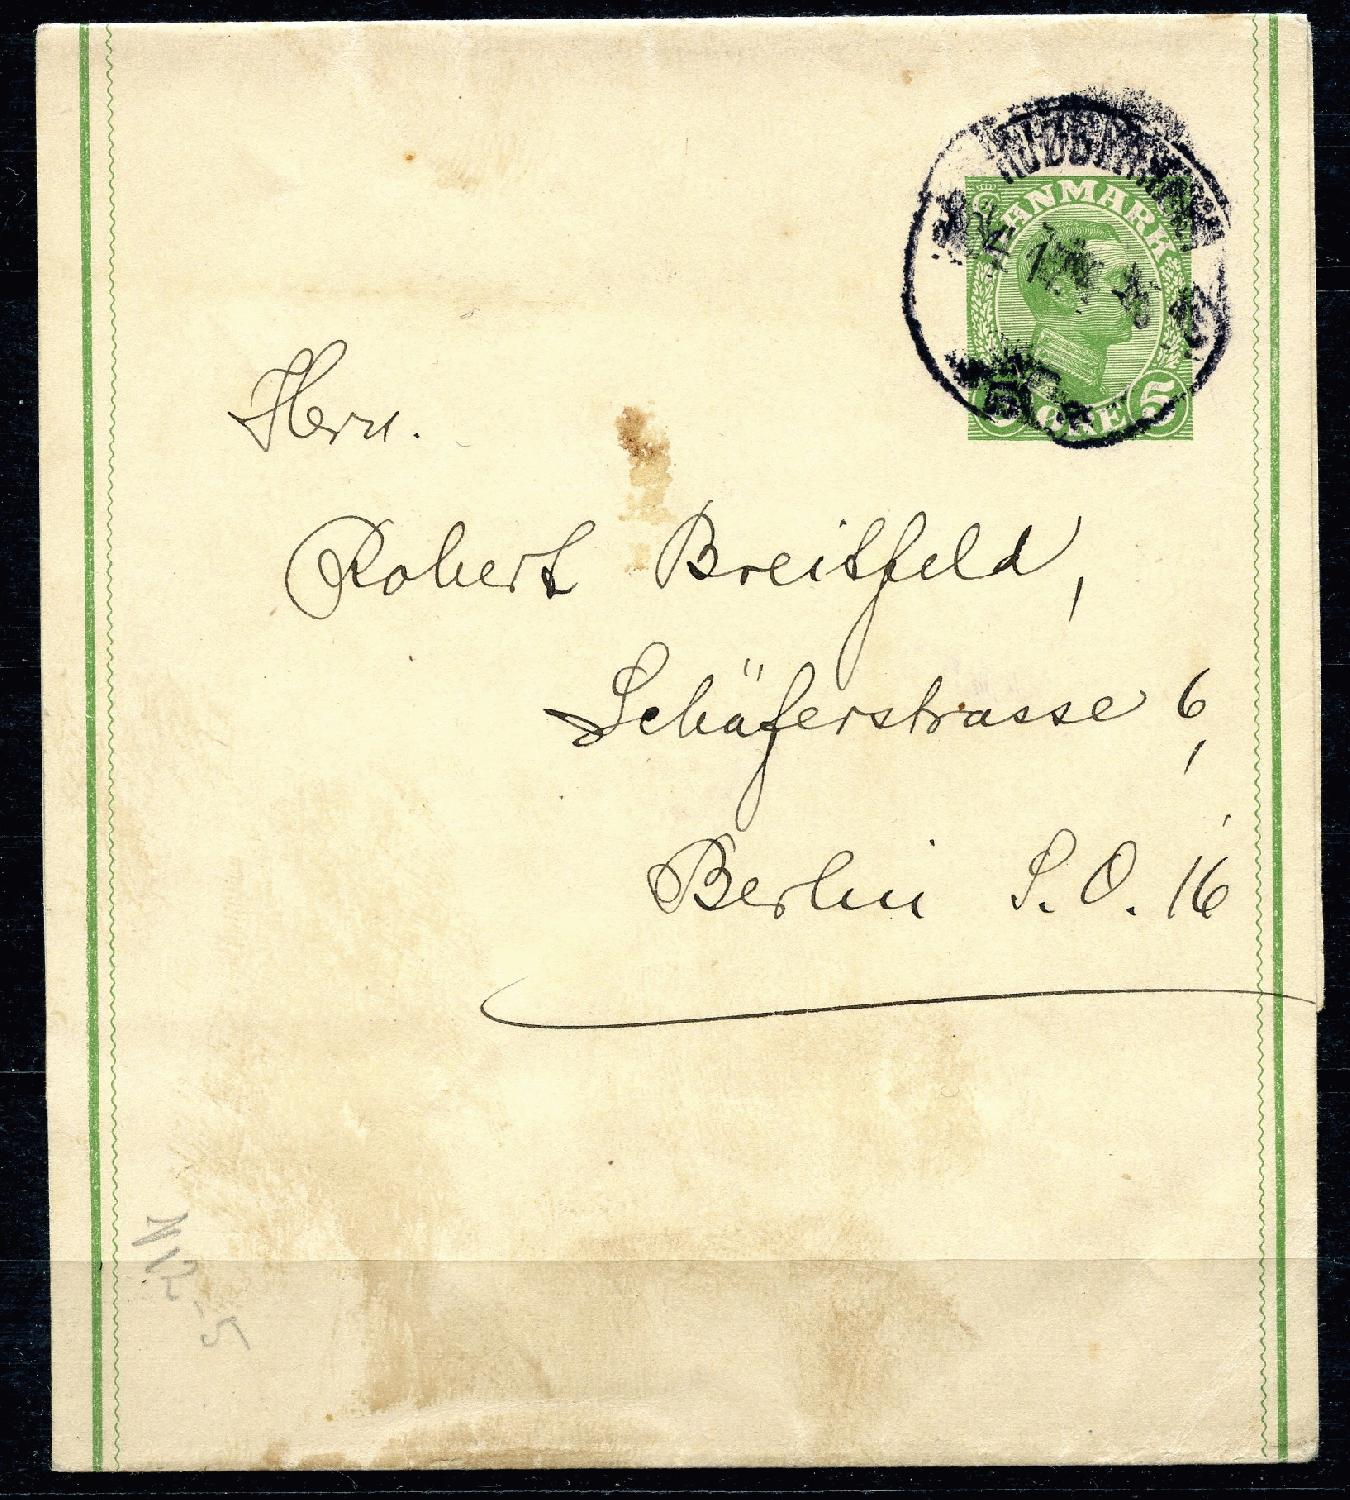 DANMARK
5 ØRE 5
Herrn.
Robert Breitfeld,
Schäferstrasse 6,
Berlin S.O. 16
N12-5